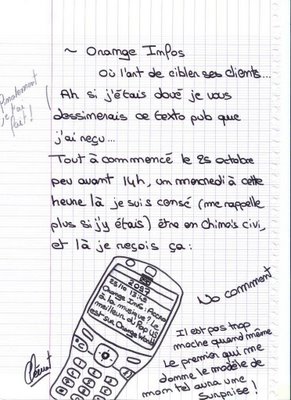 ~ Orange Infos
Où l'art de cibler ses clients...
Finalement
je l'ai
fait !
Ah si j'étais doué je vous
dessinerais ce texto pub que
j'ai reçu...
Tout à commencé le 25 octobre
peu avant 14h, un mercredi à cette
heure là je suis censé (me rappelle
plus si j'y étais) être en Chimois civi,
et là je reçois ça :
2057
25/10 13:48
Orange Info : Accro
à la musique ? le
meilleur du Pop
est sur Orange World
No comment
Il est pas trop
moche quand même
Le premier qui me
donne le modèle de
mon tel aura une
surprise !